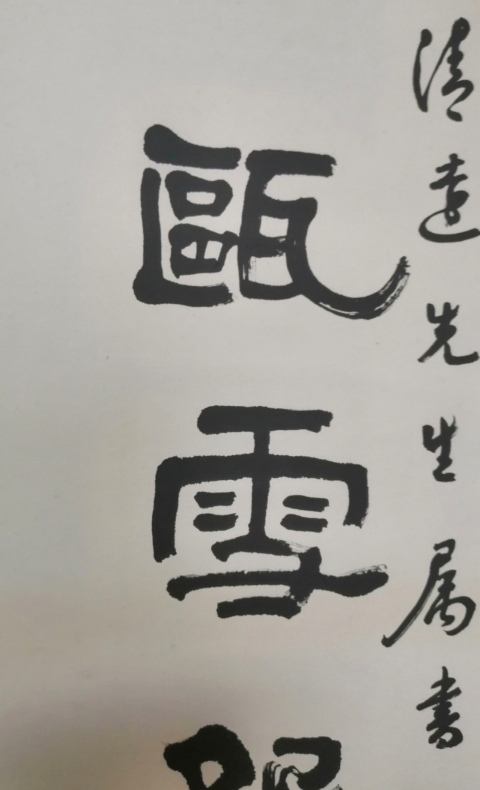 清遠先生属書
甌雪